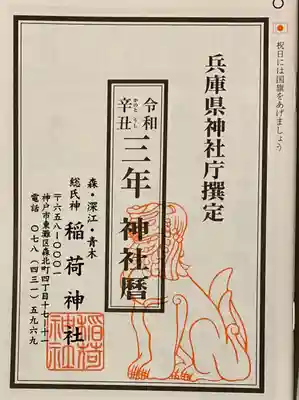 祝日には国旗をあげましょう
兵庫県神社庁撰定
令和
辛丑
かのと うし
三年 神社暦
森・深江・青木
総氏神
稲荷神社
〒六五八-〇〇〇一
神戸市東灘区森北町四丁目十七-十一
電話 〇七八(四三一)五九六九
稲荷
神社